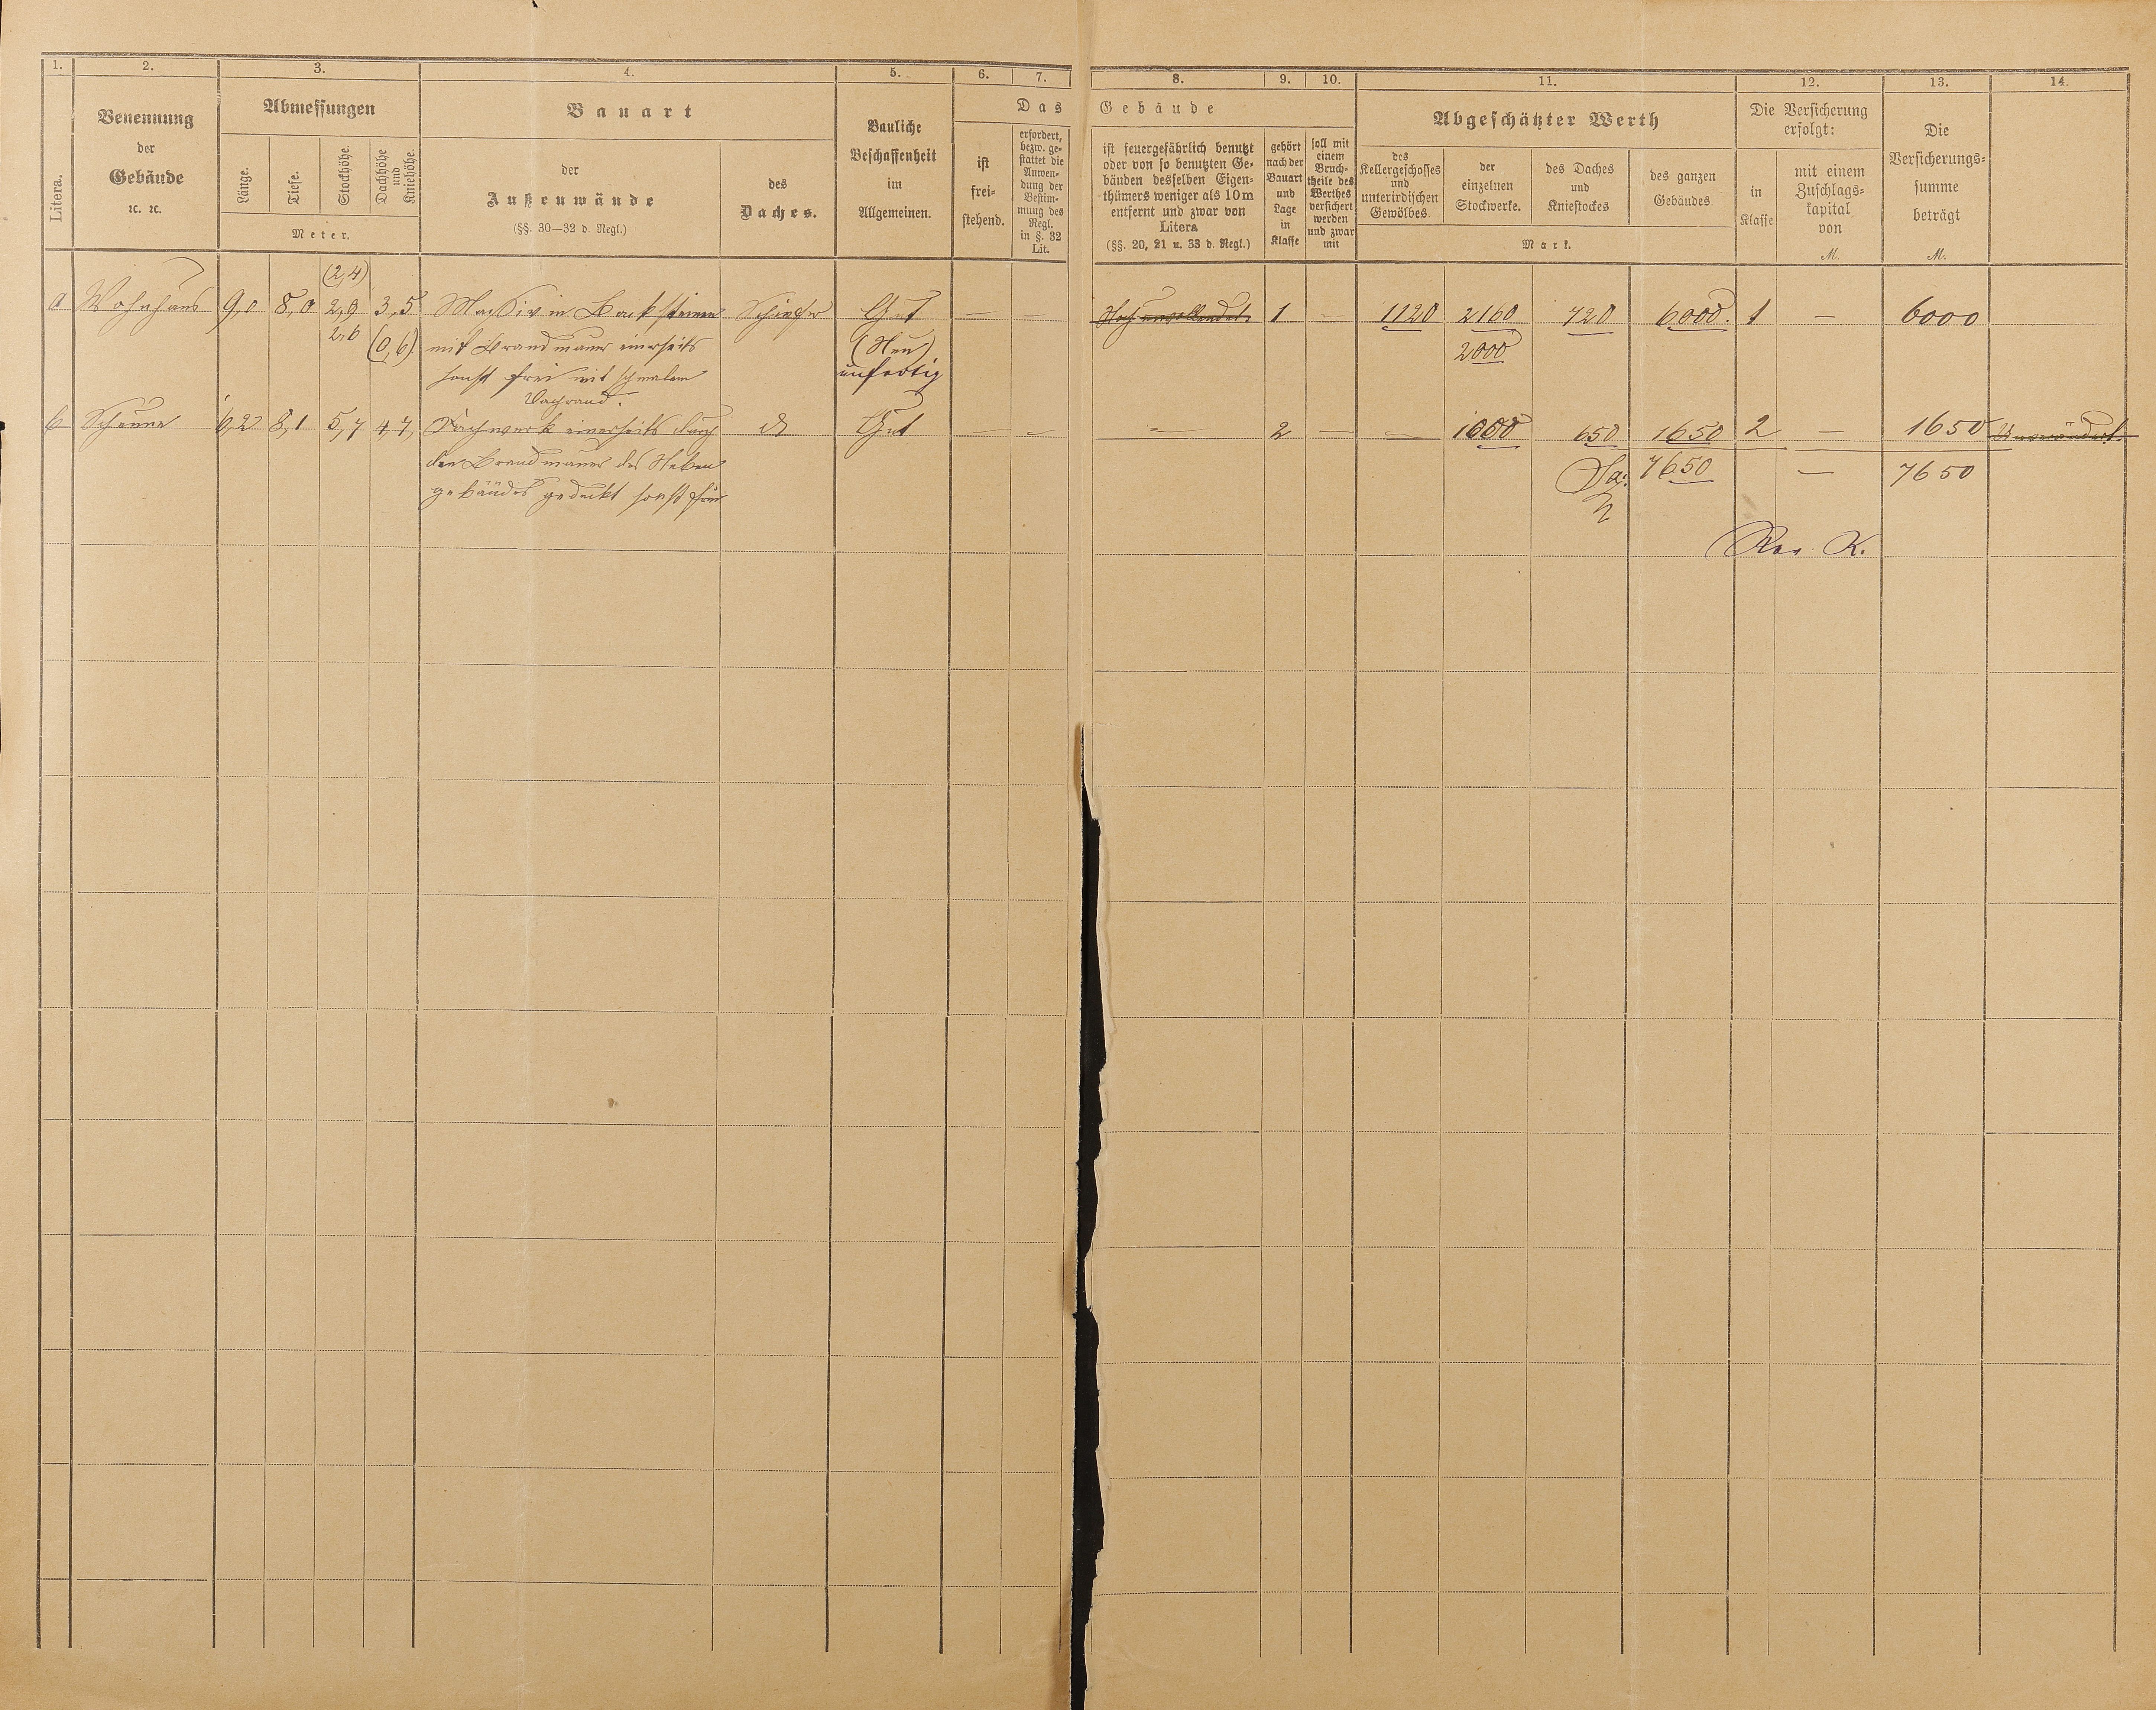 1. 2. 3. 4. 5. 6. 7. 8. 9. 10. 11. 12. 13. 14.
Litera.
Benennung
der
Gebäude
ꝛc. ꝛc.
Abmessungen
Länge.
Tiefe.
Stockhöhe.
Dachhöhe
und
Kniehöhe.
Meter.
Bauart
der
Außenwände
(§§. 30—32 d. Regl.)
des
Daches.
Bauliche
Beschaffenheit
im
Allgemeinen.
Das Gebäude
ist
frei-
stehend.
erfordert,
bezw. ge-
stattet die
Anwen-
dung der
Bestim-
mung des
Regl.
in §. 32
Lit.
ist feuergefährlich benutzt
oder von so benutzten Ge-
bäuden desselben Eigen-
thümers weniger als 10 m
entfernt und zwar von
Litera
(§§. 20, 21 u. 33 d. Regl.)
gehört
nach der
Bauart
und
Lage
in
Klasse
soll mit
einem
Bruch-
theile des
Werthes
versichert
werden
und zwar
mit
Abgeschätzter Werth
des
Kellergeschosses
und
unterirdischen
Gewölbes.
der
einzelnen
Stockwerke.
des Daches
und
Kniestockes
des ganzen
Gebäudes
Mark.
Die Versicherung
erfolgt:
in
Klasse
mit einem
Zuschlags-
kapital
von
M.
Die
Versicherungs-
summe
beträgt
M.
(2,4)
a Wohnhaus 9,0 8,0 2,9 3,5 Massiv in Backsteinen Schiefer Gut — — Noch unvollendet. 1 — 1120 2160 720 6000. 1 — 6000
2,6 (0,6) mit Brandmauer einerseits (Neu) 2000
sonst frei mit schmalem unfertig
Dachrand.
b Scheune 6,2 8,1 5,7 4,7, Fachwerk einerseits durch do Gut — — — 2 — — 1000 650 1650 2 — 1650 Unverändert.
den Brandmauer des Neben Sa: 7650 — 7650
gebäudes gedeckt sonst frei
Rev. K.